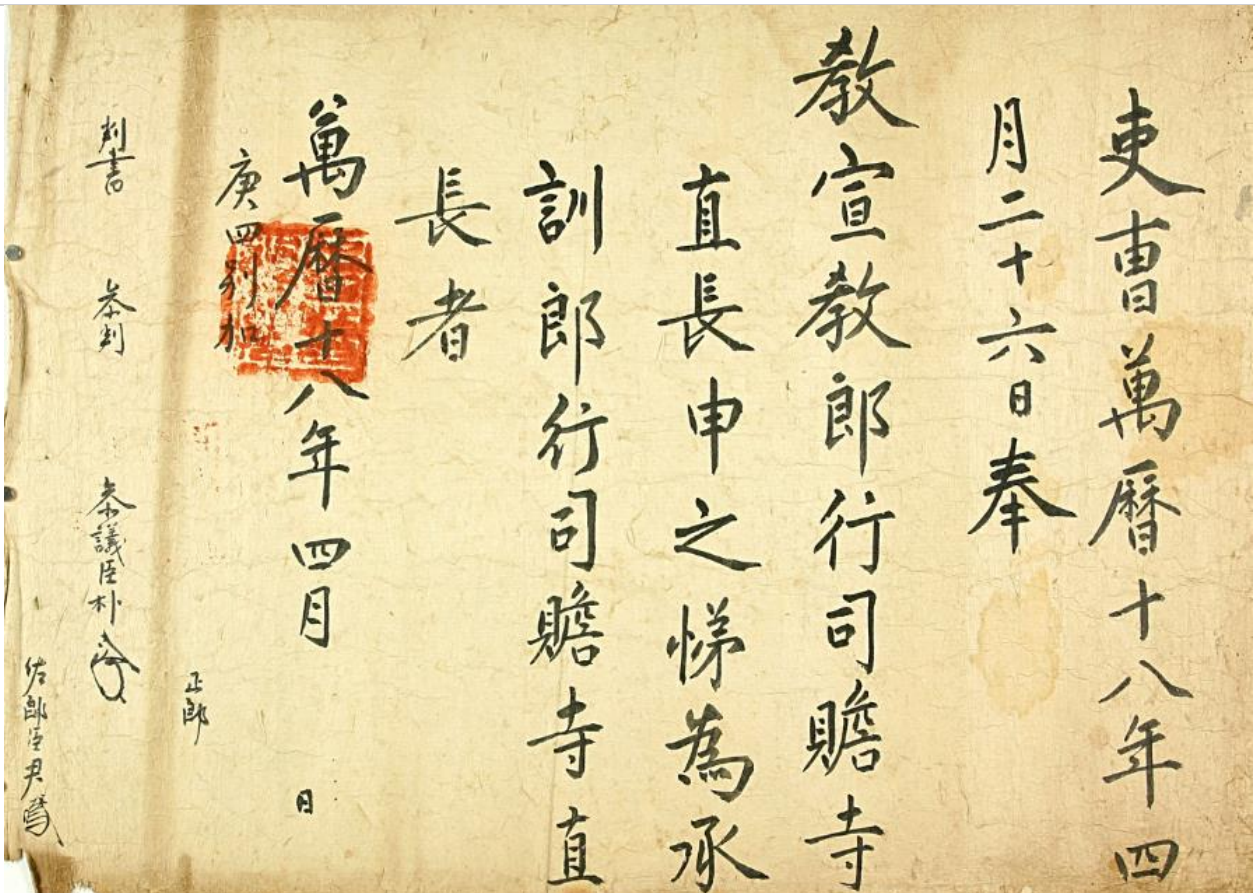 吏曹萬曆十八年四
月二十六日奉
教宣教郎行司贍寺
直長申之悌為承
訓郎行司贍寺直
長者
萬曆十八年四月 日
庚四別加
正郎
判書 參判 參議臣朴
佐郎臣尹